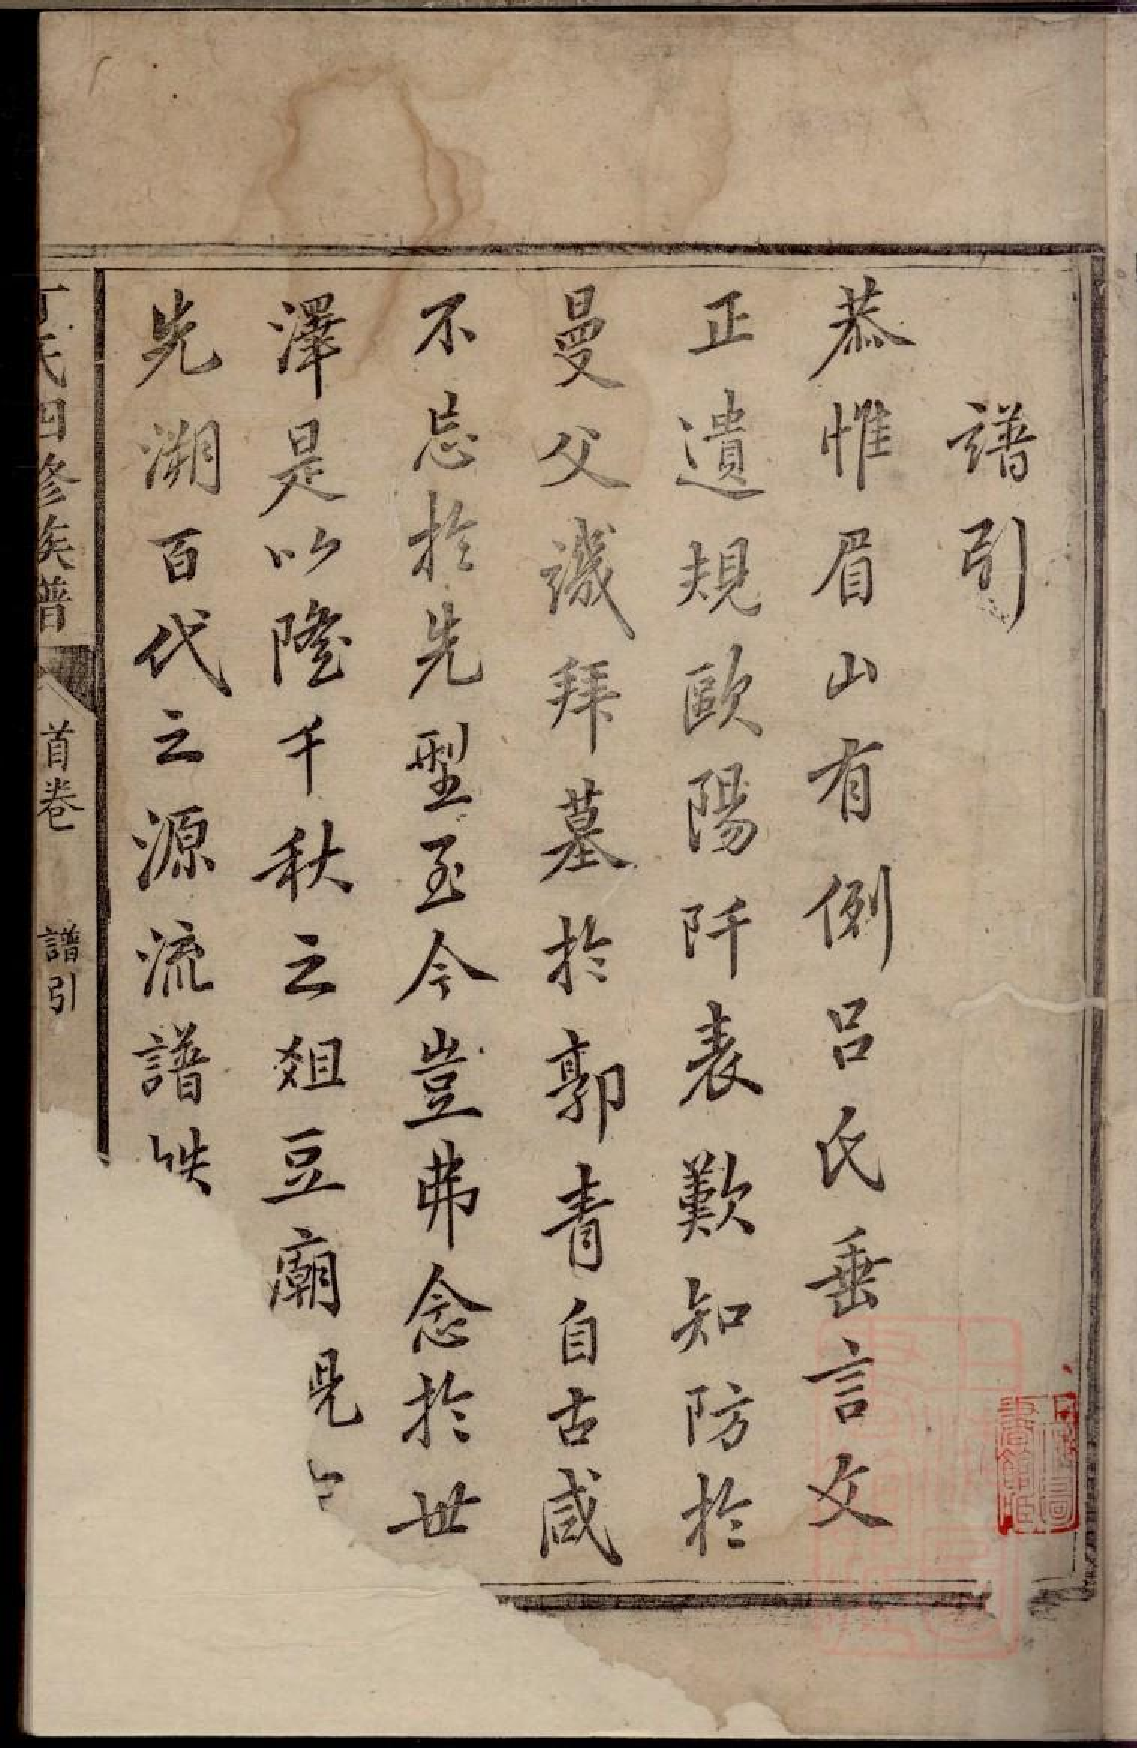 譜引
恭惟眉山有例呂氏垂言文
正遺規歐陽阡表歎知防於
曼父譏拜墓於郭青自古咸
不忘於先型至今豈弗念於世
澤是以隆千秋之俎豆廟見
先溯百代之源流譜
氏四修族譜
首卷
譜引